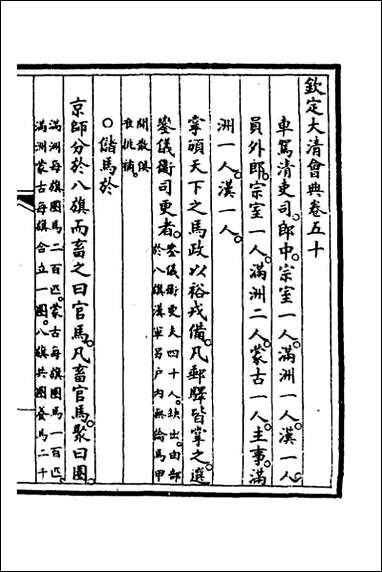 欽定大清會典卷五十
車駕清吏司。郎中。宗室一人。滿洲一人。漢一人。
員外郎。宗室一人。滿洲二人。蒙古一人。主事。滿
洲一人。漢一人。
掌頒天下之馬政。以裕戎備。凡郵驛皆掌之。選
鑾儀衛司更者。鑾儀衛更夫四十人。缺出。由部
於八旗漢軍另戶內無論馬甲
閒散俱
准挑補。
○儲馬於
京師。分於八旗而畜之曰官馬。凡畜官馬。聚曰圈。
滿洲每旗圈馬二百匹。蒙古每旗圈馬一百匹。
滿洲蒙古每旗合立一圈。八旗共圈養馬二千